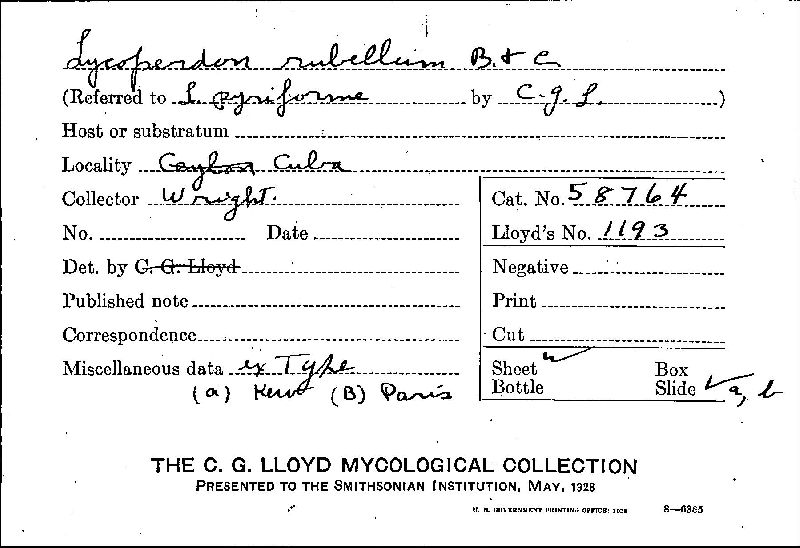 Lycoperdon rubellum B. & C.
(Referred to L. pyriforme by C. G. L.)
Host or substratum
Locality Ceylon Cuba
Collector Wright.
No. Date
Det. by C. G. Lloyd
Published note
Correspondence
Miscellaneous data ex Type
(a) Kew (B) Paris
Cat. No. 58764
Lloyd's No. 1193
Negative
Print
Cut
Sheet ✓ Box
Bottle Slide ✓ a, b
THE C. G. LLOYD MYCOLOGICAL COLLECTION
PRESENTED TO THE SMITHSONIAN INSTITUTION, MAY, 1928
U. S. GOVERNMENT PRINTING OFFICE: 1928 8—6365